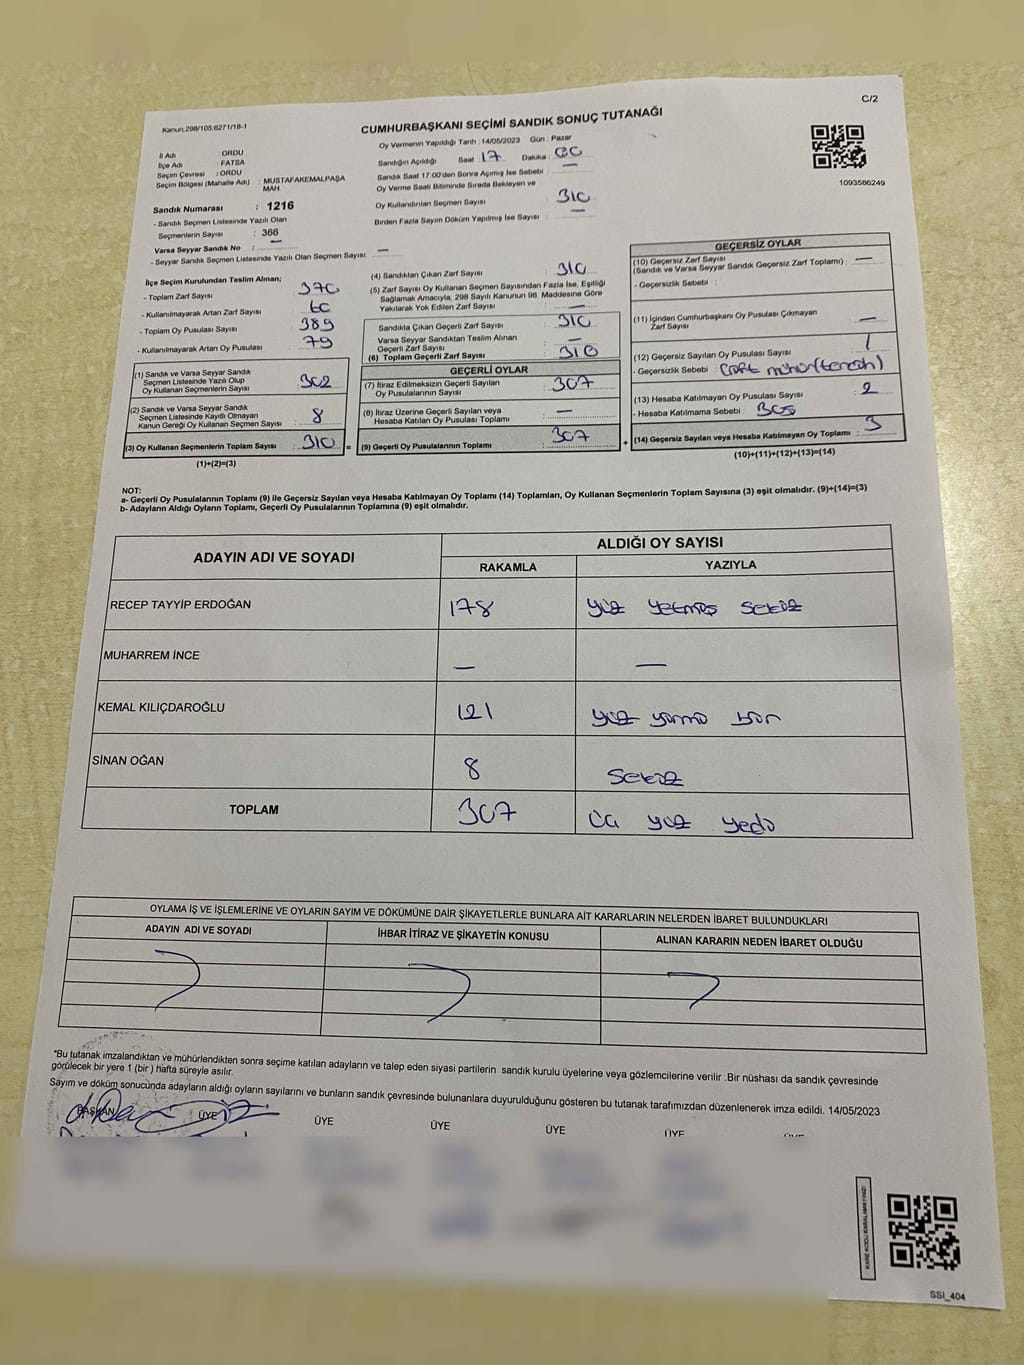 C/2
Kanun,298/105,6271/18-1
CUMHURBAŞKANI SEÇİMİ SANDIK SONUÇ TUTANAĞI
1093586249
İl Adı : ORDU
İlçe Adı : FATSA
Seçim Çevresi : ORDU
Seçim Bölgesi (Mahalle Adı) : MUSTAFAKEMALPAŞA MAH.
Sandık Numarası : 1216
- Sandık Seçmen Listesinde Yazılı Olan
Seçmenlerin Sayısı : 366
Varsa Seyyar Sandık No : —
- Seyyar Sandık Seçmen Listesinde Yazılı Olan Seçmen Sayısı: —
Oy Vermenin Yapıldığı Tarih : 14/05/2023 Gün : Pazar
Sandığın Açıldığı Saat 17 Dakika : 00
Sandık Saat 17:00'den Sonra Açılmış İse Sebebi : —
Oy Verme Saati Bitiminde Sırada Bekleyen ve
Oy Kullandırılan Seçmen Sayısı 310
Birden Fazla Sayım Döküm Yapılmış İse Sayısı : —
İlçe Seçim Kurulundan Teslim Alınan;
- Toplam Zarf Sayısı 370
- Kullanılmayarak Artan Zarf Sayısı 60
- Toplam Oy Pusulası Sayısı 389
- Kullanılmayarak Artan Oy Pusulası 79
(1) Sandık ve Varsa Seyyar Sandık
Seçmen Listesinde Yazılı Olup
Oy Kullanan Seçmenlerin Sayısı 302
(2) Sandık ve Varsa Seyyar Sandık
Seçmen Listesinde Kayıtlı Olmayan
Kanun Gereği Oy Kullanan Seçmen Sayısı : 8
(3) Oy Kullanan Seçmenlerin Toplam Sayısı : 310 =
(1)+(2)=(3)
(4) Sandıktan Çıkan Zarf Sayısı 310
(5) Zarf Sayısı Oy Kullanan Seçmen Sayısından Fazla İse, Eşitliği
Sağlamak Amacıyla, 298 Sayılı Kanunun 98. Maddesine Göre
Yakılarak Yok Edilen Zarf Sayısı —
Sandıkta Çıkan Geçerli Zarf Sayısı : 310
Varsa Seyyar Sandıktan Teslim Alınan
Geçerli Zarf Sayısı —
(6) Toplam Geçerli Zarf Sayısı : 310
GEÇERLİ OYLAR
(7) İtiraz Edilmeksizin Geçerli Sayılan
Oy Pusulasının Sayısı : 307
(8) İtiraz Üzerine Geçerli Sayılan veya
Hesaba Katılan Oy Pusulası Toplamı : —
(9) Geçerli Oy Pusulalarının Toplamı : 307 +
GEÇERSİZ OYLAR
(10) Geçersiz Zarf Sayısı
(Sandık ve Varsa Seyyar Sandık Geçersiz Zarf Toplamı) : —
- Geçersizlik Sebebi :
(11) İçinden Cumhurbaşkanı Oy Pusulası Çıkmayan
Zarf Sayısı —
(12) Geçersiz Sayılan Oy Pusulası Sayısı 1
- Geçersizlik Sebebi :
(13) Hesaba Katılmayan Oy Pusulası Sayısı 2
- Hesaba Katılmama Sebebi : Boş
(14) Geçersiz Sayılan veya Hesaba Katılmayan Oy Toplamı : 3
(10)+(11)+(12)+(13)=(14)
NOT:
a- Geçerli Oy Pusulalarının Toplamı (9) ile Geçersiz Sayılan veya Hesaba Katılmayan Oy Toplamı (14) Toplamları, Oy Kullanan Seçmenlerin Toplam Sayısına (3) eşit olmalıdır. (9)+(14)=(3)
b- Adayların Aldığı Oyların Toplamı, Geçerli Oy Pusulalarının Toplamına (9) eşit olmalıdır.
ADAYIN ADI VE SOYADI
ALDIĞI OY SAYISI
RAKAMLA YAZIYLA
RECEP TAYYİP ERDOĞAN 178 yüz yetmiş sekiz
MUHARREM İNCE — —
KEMAL KILIÇDAROĞLU 121 yüz yirmi bir
SİNAN OĞAN 8 sekiz
TOPLAM 307 üç yüz yedi
OYLAMA İŞ VE İŞLEMLERİNE VE OYLARIN SAYIM VE DÖKÜMÜNE DAİR ŞİKAYETLERLE BUNLARA AİT KARARLARIN NELERDEN İBARET BULUNDUKLARI
ADAYIN ADI VE SOYADI İHBAR İTİRAZ VE ŞİKAYETİN KONUSU ALINAN KARARIN NEDEN İBARET OLDUĞU
*Bu tutanak imzalandıktan ve mühürlendikten sonra seçime katılan adayların ve talep eden siyasi partilerin sandık kurulu üyelerine veya gözlemcilerine verilir .Bir nüshası da sandık çevresinde
görülecek bir yere 1 (bir ) hafta süreyle asılır.
Sayım ve döküm sonucunda adayların aldığı oyların sayılarını ve bunların sandık çevresinde bulunanlara duyurulduğunu gösteren bu tutanak tarafımızdan düzenlenerek imza edildi. 14/05/2023
BAŞKAN ÜYE ÜYE ÜYE ÜYE ÜYE ÜYE
KARE KODU KARALAMAYINIZ!
SSI_404